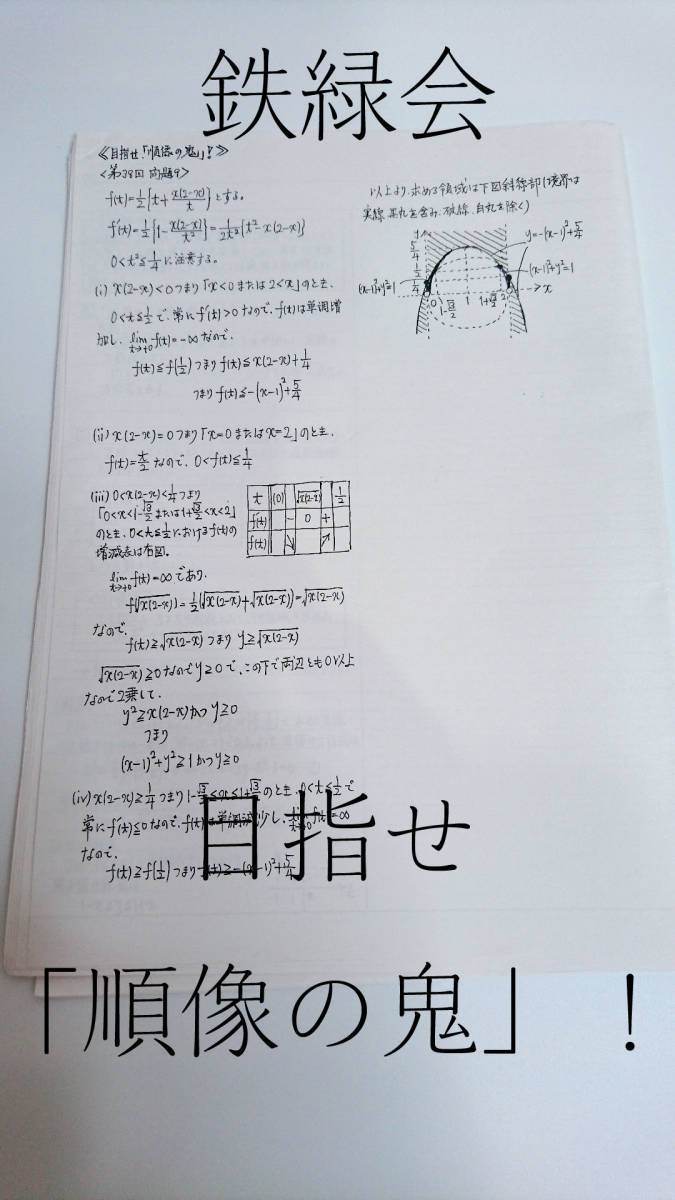 鉄緑会
≪目指せ、「順像の鬼」!≫
<第38回 問題9>
f(t)=1/2{t+x(2-x)/t}とする。
f'(t)=1/2{1-x(2-x)/t²}=1/2t²{t²-x(2-x)}
0<t²≦1/4に注意する。
(i) x(2-x)<0つまり「x<0または2<x」のとき、
0<t≦1/2で、常にf'(t)>0なので、f(t)は単調増
加し、lim t→+0 f(t)=-∞なので、
f(t)≦f(1/2)つまりf(t)≦x(2-x)+1/4
つまりf(t)≦-(x-1)²+5/4
(ii) x(2-x)=0つまり「x=0またはx=2」のとき、
f(t)=t/2なので、0<f(t)≦1/4
(iii) 0<x(2-x)<1/4つまり
「0<x<1-√3/2または1+√3/2<x<2」
のとき、0<t≦1/2におけるf(t)の
増減表は右図。
t (0) √x(2-x) 1/2
f'(t) - 0 +
f(t) ↘ ↗
lim t→+0 f(t)=∞であり、
f(√x(2-x))=1/2(√x(2-x)+√x(2-x))=√x(2-x)
なので、
f(t)≧√x(2-x)つまりy≧√x(2-x)
√x(2-x)≧0なのでy≧0で、この下で両辺とも0以上
なので2乗して、
y²≧x(2-x)かつy≧0
つまり
(x-1)²+y²≧1かつy≧0
(iv) x(2-x)≧1/4つまり1-√3/2≦x≦1+√3/2のとき、0<t≦1/2で
常にf'(t)≦0なので、f(t)は単調減少し、lim t→+0 f(t)=∞
なので、
f(t)≧f(1/2)つまりf(t)≧-(x-1)²+5/4
以上より、求める領域は下図斜線部(境界は
実線、黒丸を含み、破線、白丸を除く)
y
5/4
1/2
1/4
y=-(x-1)²+5/4
(x-1)²+y²=1
(x-1)²+y²=1
0 1 2 x
1-√3/2 1+√3/2
目指せ
「順像の鬼」!